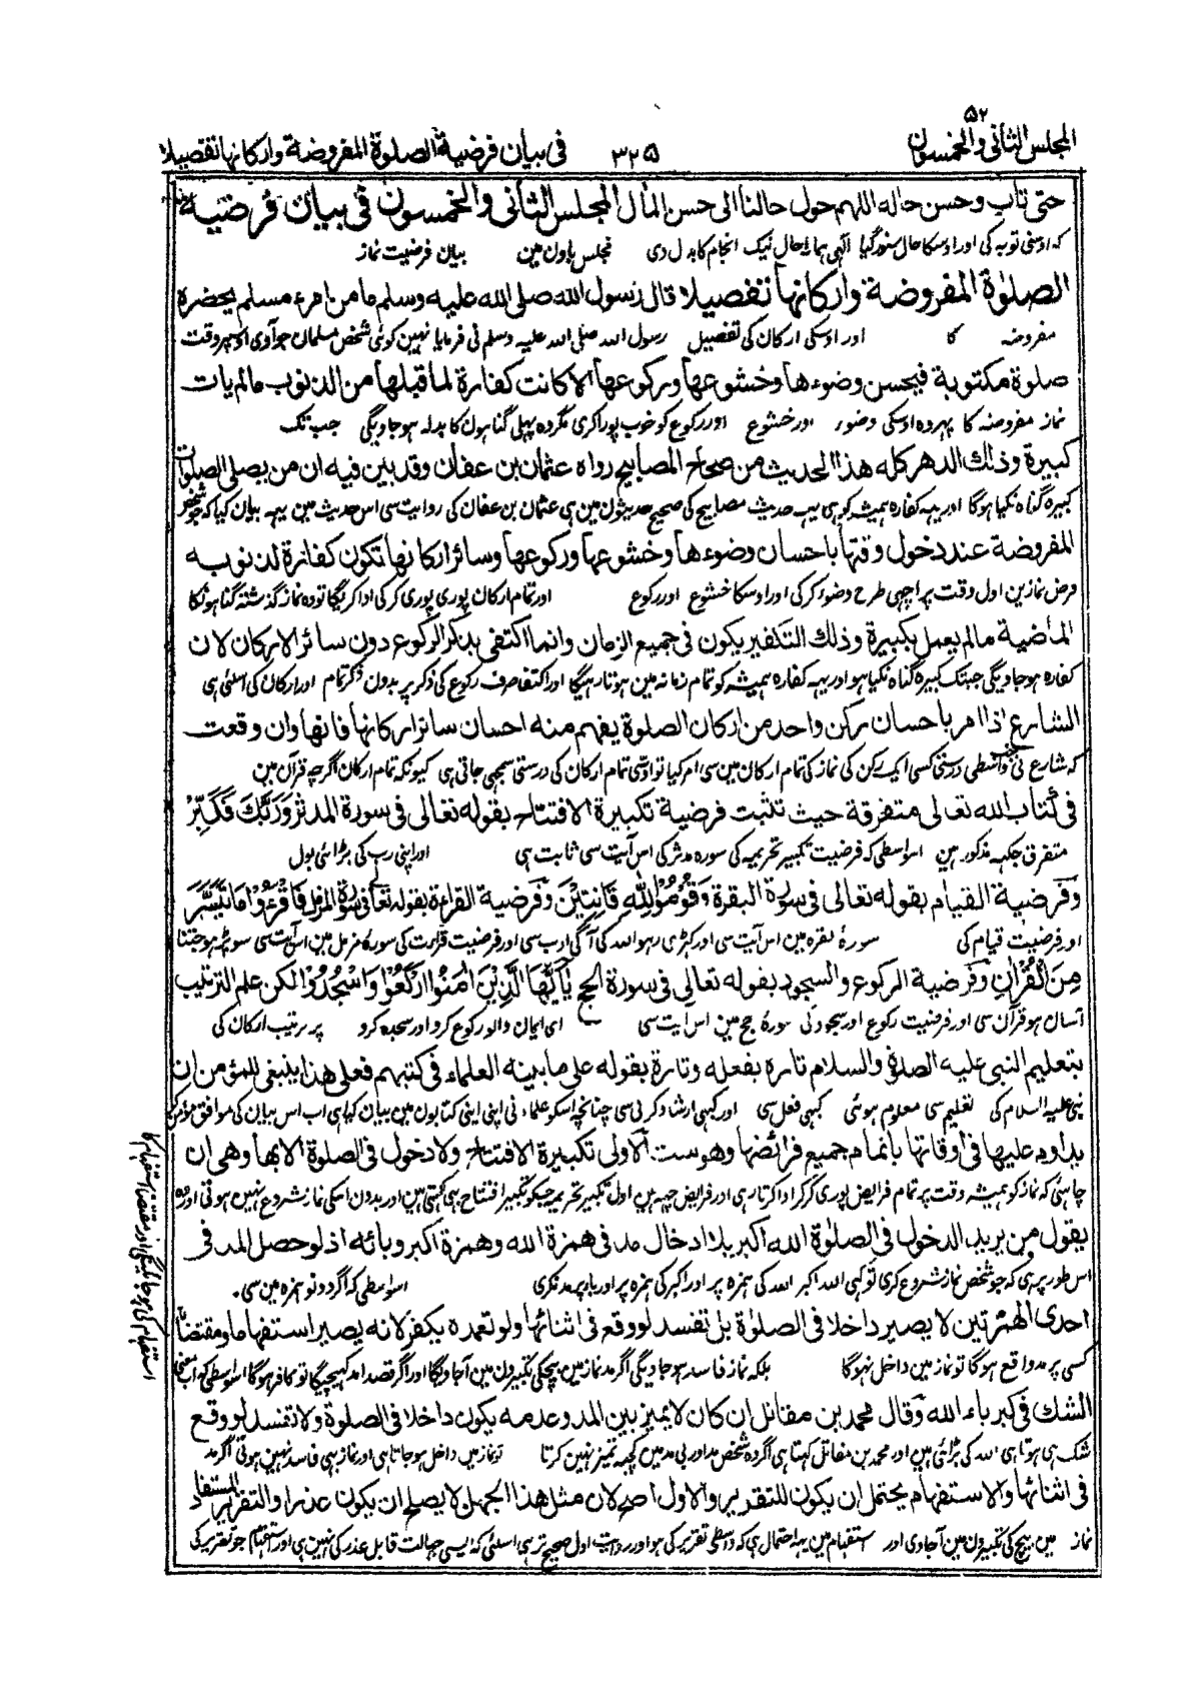 ۵۲
المجلس الثانی والخمسون ۳۲۵ فی بیان فرضیة الصلوة المفروضة وارکانها تفصیلا
حتی تاب وحسن حاله اللهم حول حالنا الی حسن المأل المجلس الثانی والخمسون فی بیان فرضیة
که اوسنی توبه کی اور اوسکا حال سنور گیا الٰهی همارا حال نیک انجام کا بدل دی مجلس باون مین بیان فرضیت نماز
الصلوٰة المفروضة وارکانها تفصیلا قال رسول الله صلی الله علیه وسلم ما من امرء مسلم یحضره
مفروضه کا اور اوسکی ارکان کی تفصیل رسول الله صلی الله علیه وسلم نی فرمایا نهین کوئی شخص مسلمان جو آوی اوسپر وقت
صلوة مکتوبة فیحسن وضوءها وخشوعها ورکوعها الا کانت کفارة لما قبلها من الذنوب مالم یات
نماز مفروضه کا پهر وه اوسکی وضوء اور خشوع اور رکوع کو خوب پورا کری مگر وه پهلی گناهون کا بدله هو جاویگی جب تک
کبیرة وذلك الدهر کله هذا الحدیث من صحاح المصابیح رواه عثمان بن عفان وقد بین فیه ان من یصلی الصلوات
کبیره گناه نکیا هوگا اور یهه کفاره همیشه کو هی یهه حدیث مصابیح کی صحیح حدیثون مین هی عثمان بن عفان کی روایت سی اس حدیث مین یهه بیان کیا که جو شخص
المفروضة عند دخول وقتها باحسان وضوءها وخشوعها ورکوعها وسائر ارکانها تکون کفارة لذنوبه
فرض نمازین اول وقت پر اچهی طرح وضوء کرکی اور اوسکا خشوع اور رکوع اور تمام ارکان پوری پوری کرکی ادا کریگا تو وه نماز گذشته گناهونکا
الماضیة مالم یعمل بکبیرة وذلك التکفیر یکون فی جمیع الزمان وانما اکتفی بذکر الرکوع دون سائر الارکان لان
کفاره هو جاویگی جبتک کبیره گناه نکیا هو اور یهه کفاره همیشه کو تمام زمانه مین هوتا رهیگا اور اکتفا صرف رکوع کی ذکر پر بدون ذکر تمام اور ارکان کی اسلئی هی
الشارع اذا امر باحسان رکن واحد من ارکان الصلوة یفهم منه احسان سائر ارکانها فانها وان وقعت
که شارع نی درستی کسی ایک رکن کی نماز کی تمام ارکان مین سی امر کیا تو اوسی تمام ارکان کی درستی سمجهی جاتی هی کیونکه تمام ارکان اگرچه قرآن مین
فی کتاب الله تعالی متفرقة حیث تثبت فرضیة تکبیرة الافتتاح بقوله تعالی فی سورة المدثر وَرَبَّكَ فَكَبِّرْ
متفرق جگهه مذکور هین اسواسطی که فرضیت تکبیر تحریمه کی سوره مدثر کی اس آیت سی ثابت هی اور اپنی رب کی بڑائی بول
وفرضیة القیام بقوله تعالی فی سورة البقرة وَقُوْمُوْا لِلّٰهِ قَانِتِیْنَ وفرضیة القراءة بقوله تعالی فی سورة المزمل فَاقْرَءُوْا مَا تَیَسَّرَ
اور فرضیت قیام کی سورهٔ بقره مین اس آیت سی اور کهڑی رهو الله کی آگی ادب سی اور فرضیت قراءت کی سورهٔ مزمل مین اس آیت سی سو پڑهو جتنا
مِنَ الْقُرْاٰنِ وفرضیة الرکوع والسجود بقوله تعالی فی سورة الحج یٰاَیُّهَا الَّذِیْنَ اٰمَنُوا ارْكَعُوْا وَاسْجُدُوْا لکن علم الترتیب
آسان هو قرآن سی اور فرضیت رکوع اور سجود کی سورهٔ حج مین اس آیت سی ای ایمان والو رکوع کرو اور سجده کرو پر ترتیب ارکان کی
بتعلیم النبی علیه الصلوة والسلام تارة بفعله وتارة بقوله علی ما بینه العلماء فی کتبهم فعلی هذا ینبغی للمؤمن ان
نبی علیه السلام کی تعلیم سی معلوم هوئی کبهی فعل سی اور کبهی ارشاد کرنی سی چنانچه اسکو علماء نی اپنی اپنی کتابون مین بیان کیا هی اب اس بیان کی موافق مؤمن کو
یداوم علیها فی اوقاتها باتمام جمیع فرائضها وهو ست الاولی تکبیرة الافتتاح ولا دخول فی الصلوة الا بها وهی ان
چاهئی که نماز کو همیشه وقت پر تمام فرایض پوری کرکر ادا کرتا رهی اور فرایض چهه هین اول تکبیر تحریمه جسکو تکبیر افتتاح بهی کهتی هین اور بدون اسکی نماز شروع نهین هوتی اور وه
یقول من یرید الدخول فی الصلوٰة الله اکبر بلا ادخال مد فی همزة الله وهمزة اکبر وبائه اذ لو حصل المد فی
اس طور پر هی که جو شخص نماز شروع کری تو کهی الله اکبر الله کی همزه پر اور اکبر کی همزه پر اور باء پر مد نکری اسواسطی که اگر دونو همزه مین سی
احدی الهمزتین لا یصیر داخلا فی الصلوٰة بل تفسد لو وقع فی اثنائها ولو تعمده یکفر لانه یصیر استفهاما ومقتضاه
کسی پر مد واقع هوگا تو نماز مین داخل نهوگا بلکه نماز فاسد هو جاویگی اگر مد نماز مین بیچکی تکبیرون مین آجاویگا اور اگر قصدا مد کهینچیگا تو کافر هوگا اسواسطی که اب معنی
الشك فی کبریاء الله وقال محمد بن مقاتل ان کان لا یمیز بین المد وعدمه یکون داخلا فی الصلوة ولا تفسد لو وقع
شک هی هوتا هی الله کی بڑائی مین اور محمد بن مقاتل کهتا هی اگر وه شخص مد اور بی مد مین کچهه تمیز نهین کرتا تو نماز مین داخل هو جاتا هی اور نماز بهی فاسد نهین هوتی اگر مد
فی اثنائها والاستفهام یحتمل ان یکون للتقریر والاول اصح لان مثل هذا الجهل لا یصلح ان یکون عذرا والتقریر المستفاد
نماز مین بیچ کی تکبیرون مین آجاوی اور استفهام مین یهه احتمال هی که واسطی تقریر کی هو اور روایت اول صحیح تر هی اسلئی که ایسی جهالت قابل عذر کی نهین هی اور استفهام جو تقریر کی
استفهام کی هو جائیگی اور مقتضا استفهام کا